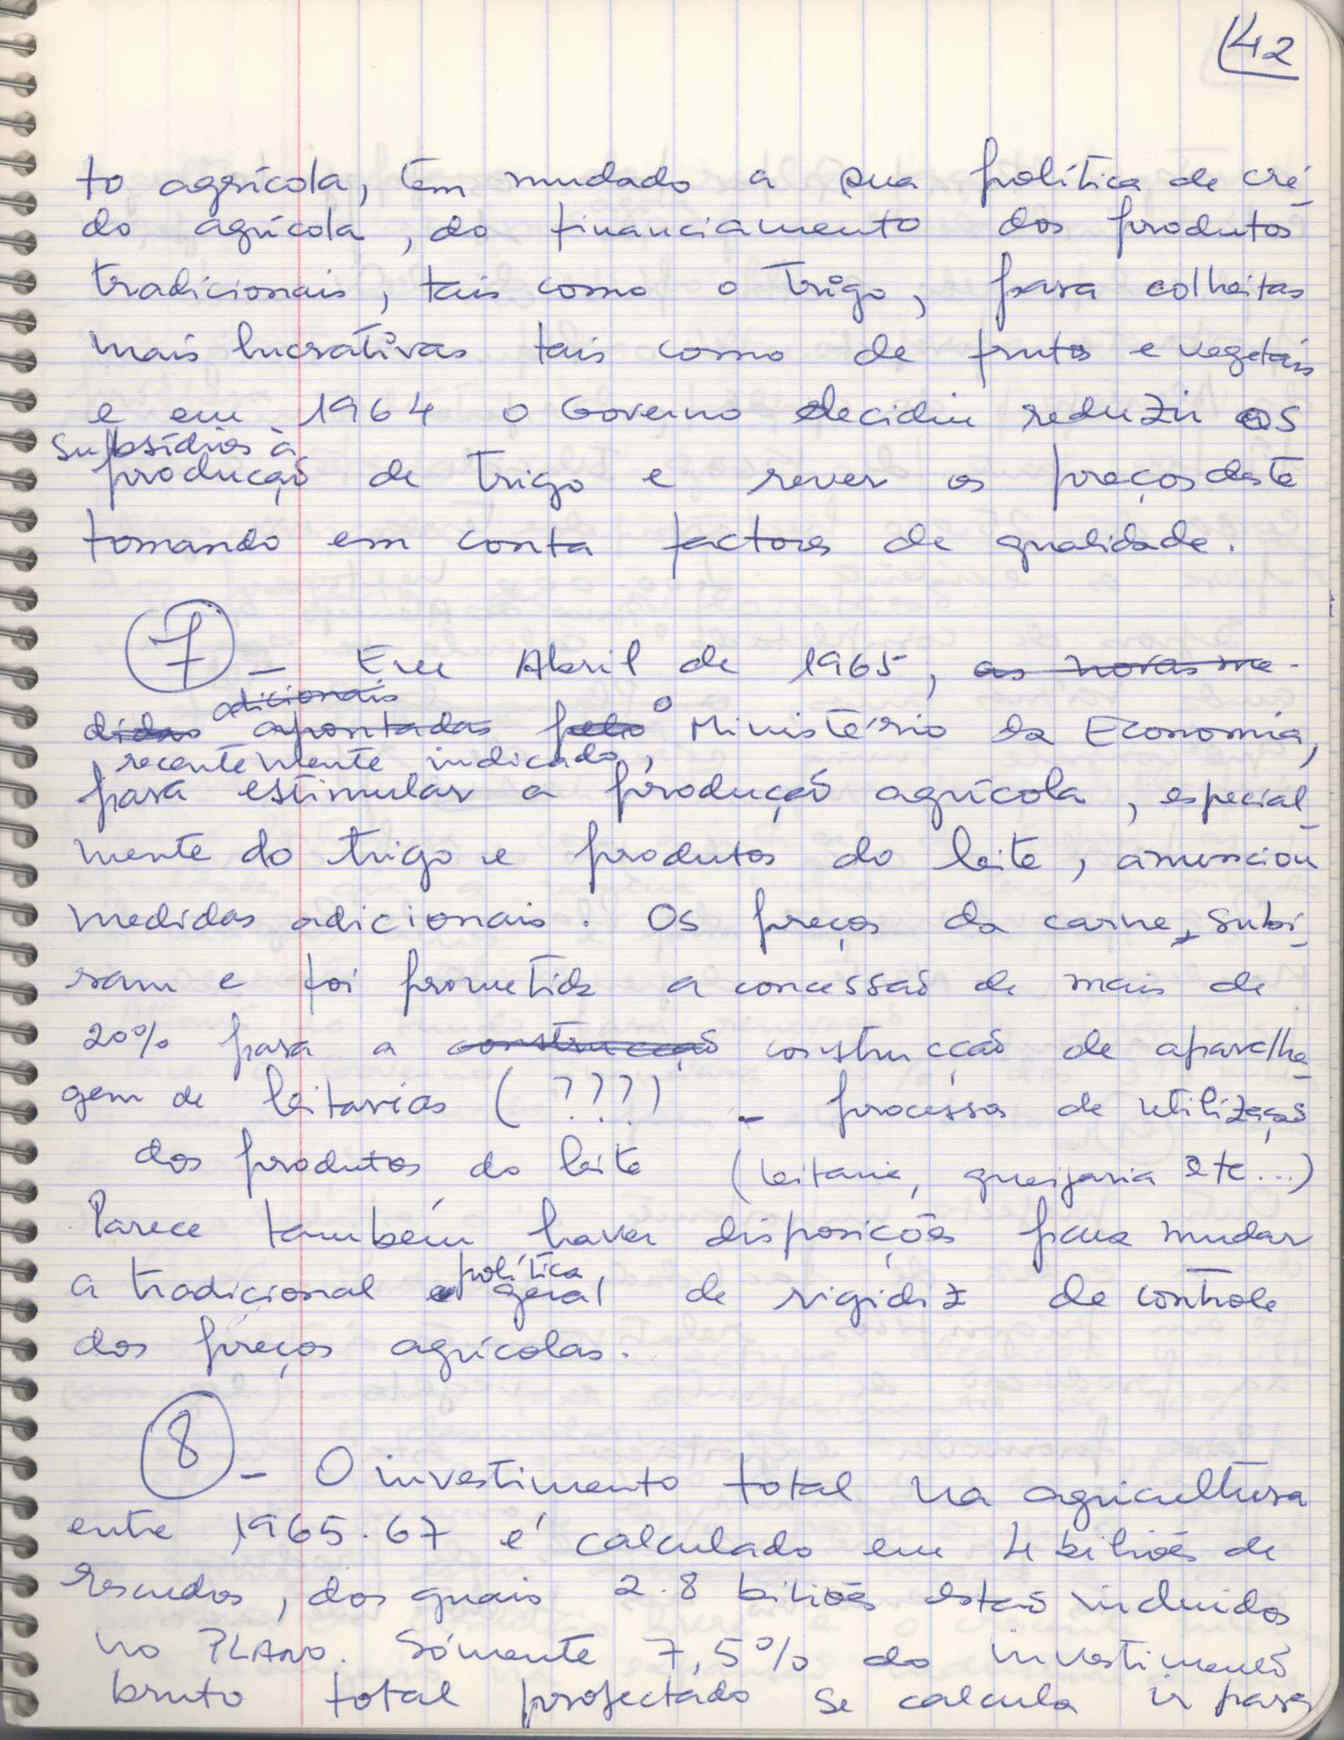 42
to agrícola, tem mudado a sua política de cré-
do agrícola, do financiamento dos produtos
tradicionais, tais como o trigo, para colheitas
mais lucrativas tais como de frutos e vegetais
e em 1964 o Governo decidiu reduzir os
subsídios à
produção de trigo e rever os preços deste
tomando em conta factores de qualidade.
7 - Em Abril de 1965, as novas me-
adicionais
didas apontadas pelo o Ministério da Economia,
recentemente indicado,
para estimular a produção agrícola, especial-
mente do trigo e produtos do leite, anunciou
medidas adicionais. Os preços da carne subi-
ram e foi prometida a concessão de mais de
20% para a construcção construcção de aparelha-
gem de leitarias (????) - processos de utilização
dos produtos do leite (leitaria, queijaria etc...)
Parece também haver disposições para mudar
política
a tradicional geral de rigidez de controle
dos preços agrícolas.
8 - O investimento total na agricultura
entre 1965.67 é calculado em 4 biliões de
escudos, dos quais 2.8 biliões estão incluidos
no PLANO. Sómente 7,5% do investimento
bruto total projectado se calcula ir para